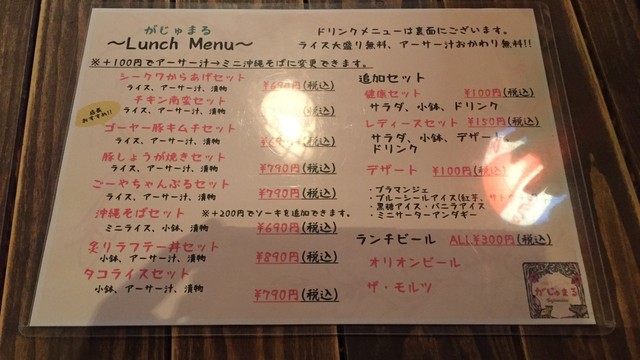 がじゅまる
～Lunch Menu～
ドリンクメニューは裏面にございます。
ライス大盛り無料、アーサー汁おかわり無料!!
※+100円でアーサー汁→ミニ沖縄そばに変更できます。
シークワからあげセット
ライス、アーサー汁、漬物
¥690円(税込)
店長おすすめ!!
チキン南蛮セット
ライス、アーサー汁、漬物
(税込)
ゴーヤー豚キムチセット
ライス、アーサー汁、漬物
(税込)
豚しょうが焼きセット
ライス、アーサー汁、漬物
¥790円(税込)
ごーやちゃんぷるセット
ライス、アーサー汁、漬物
¥790円(税込)
沖縄そばセット ※+200円でソーキを追加できます。
ミニライス、小鉢、漬物
¥690円(税込)
炙りラフテー丼セット
小鉢、アーサー汁、漬物
¥890円(税込)
タコライスセット
小鉢、アーサー汁、漬物
¥790円(税込)
追加セット
健康セット ¥100円(税込)
サラダ、小鉢、ドリンク
レディースセット ¥150円(税込)
サラダ、小鉢、デザート、
ドリンク
デザート ¥100円(税込)
・ブラマンジェ
・ブルーシールアイス(紅芋、
・黒糖アイス・バニラアイス
・ミニサーターアンダギー
ランチビール ALL¥300円(税込)
オリオンビール
ザ・モルツ
がじゅまる